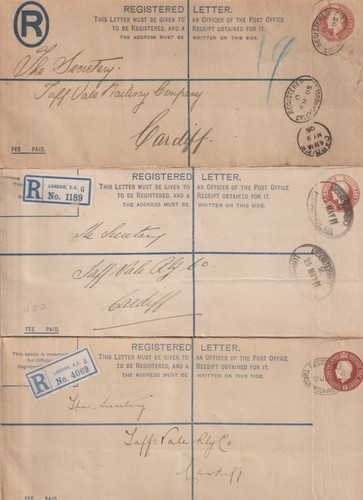 REGISTERED LETTER.
THIS LETTER MUST BE GIVEN TO AN OFFICER OF THE POST OFFICE
TO BE REGISTERED, AND A RECEIPT OBTAINED FOR IT.
THE ADDRESS MUST BE WRITTEN ON THIS SIDE.
R
The Secretary
Taff Vale Railway Company
Cardiff
FEE PAID.
REGISTERED LETTER.
THIS LETTER MUST BE GIVEN TO AN OFFICER OF THE POST OFFICE
TO BE REGISTERED, AND A RECEIPT OBTAINED FOR IT.
THE ADDRESS MUST BE WRITTEN ON THIS SIDE.
R
LONDON, E.C. 6
No. 1189
The Secretary
Taff Vale Rly Co
Cardiff
FEE PAID.
REGISTERED LETTER.
THIS LETTER MUST BE GIVEN TO AN OFFICER OF THE POST OFFICE
TO BE REGISTERED, AND A RECEIPT OBTAINED FOR IT.
THE ADDRESS MUST BE WRITTEN ON THIS SIDE.
R
No. 4069
The Secretary
Taff Vale Rly Co.
Cardiff
FEE PAID.